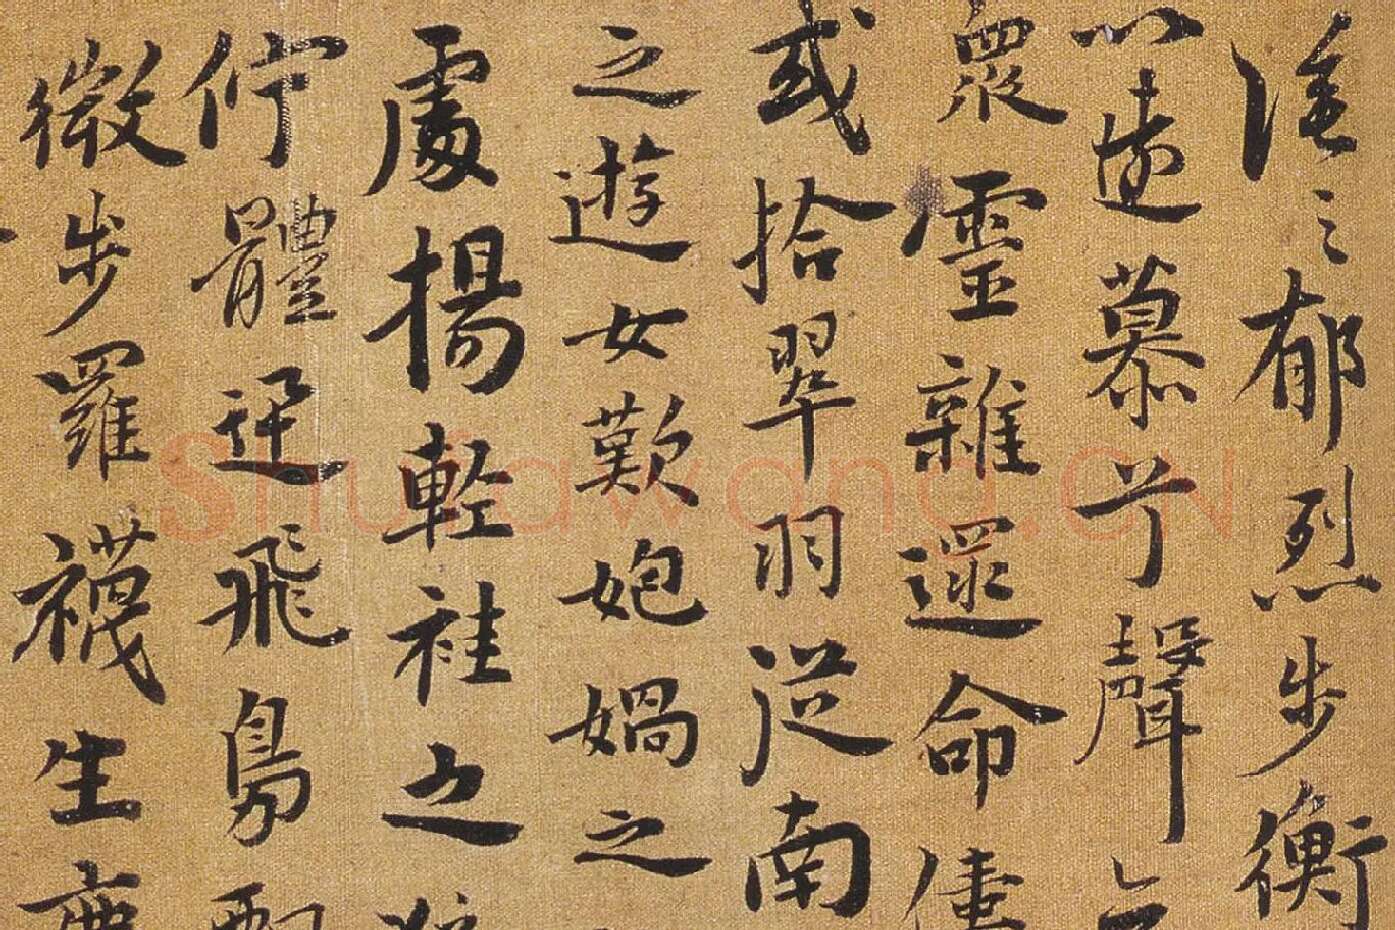 塗之郁烈步衡
以遠慕兮聲
衆靈雜遝命儔
或拾翠羽從南
之遊女歎㚿媧之
處揚輕袿之
佇體迅飛鳧
微步羅襪生塵
Shufawang.CN